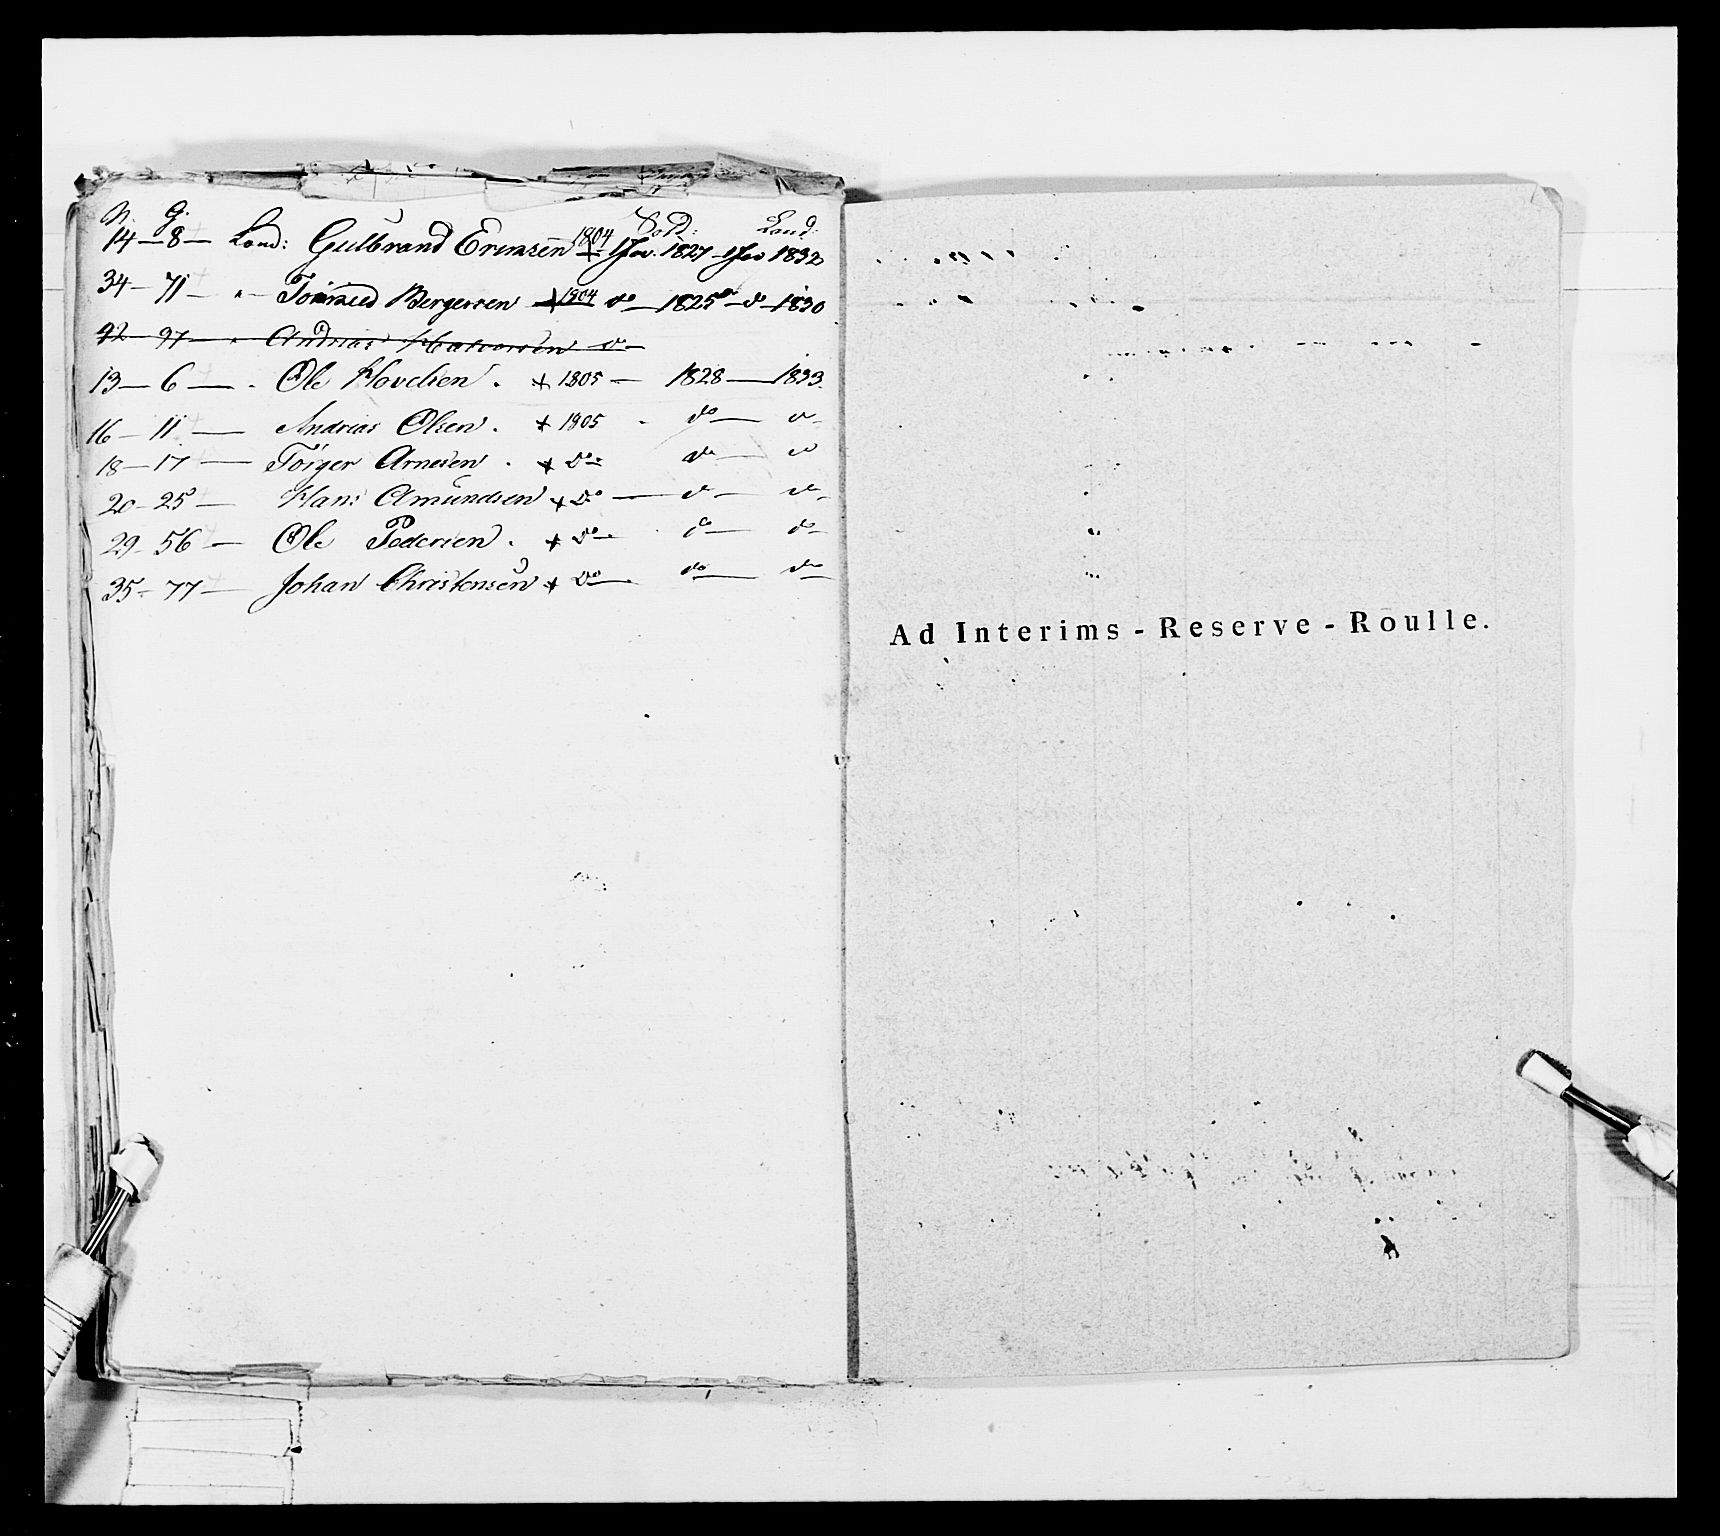 N. G. Sold: Land:
14 — 8 — Land: Gulbrand 1804 1 Jan. 1827 1 Jan 1832
34 — 71 — " — Bergersen 1804 do — 1825 — do — 1830
42 — 97 — " Andreas Halvorsen do —
13 — 6 — . Ole Hovelsen . + 1805 — 1828 — 1833.
16 — 11 — Andreas Olsen . + 1805 - do — do -
18 — 17 — Törger Arnesen . + do do — do
20 - 25 — Hans Amundsen + do — do — do -
29 - 56 — Ole Pedersen . + do — do — do -
35 - 77 — Johan Christensen + do — do — do —
Ad Interims - Reserve - Roulle.